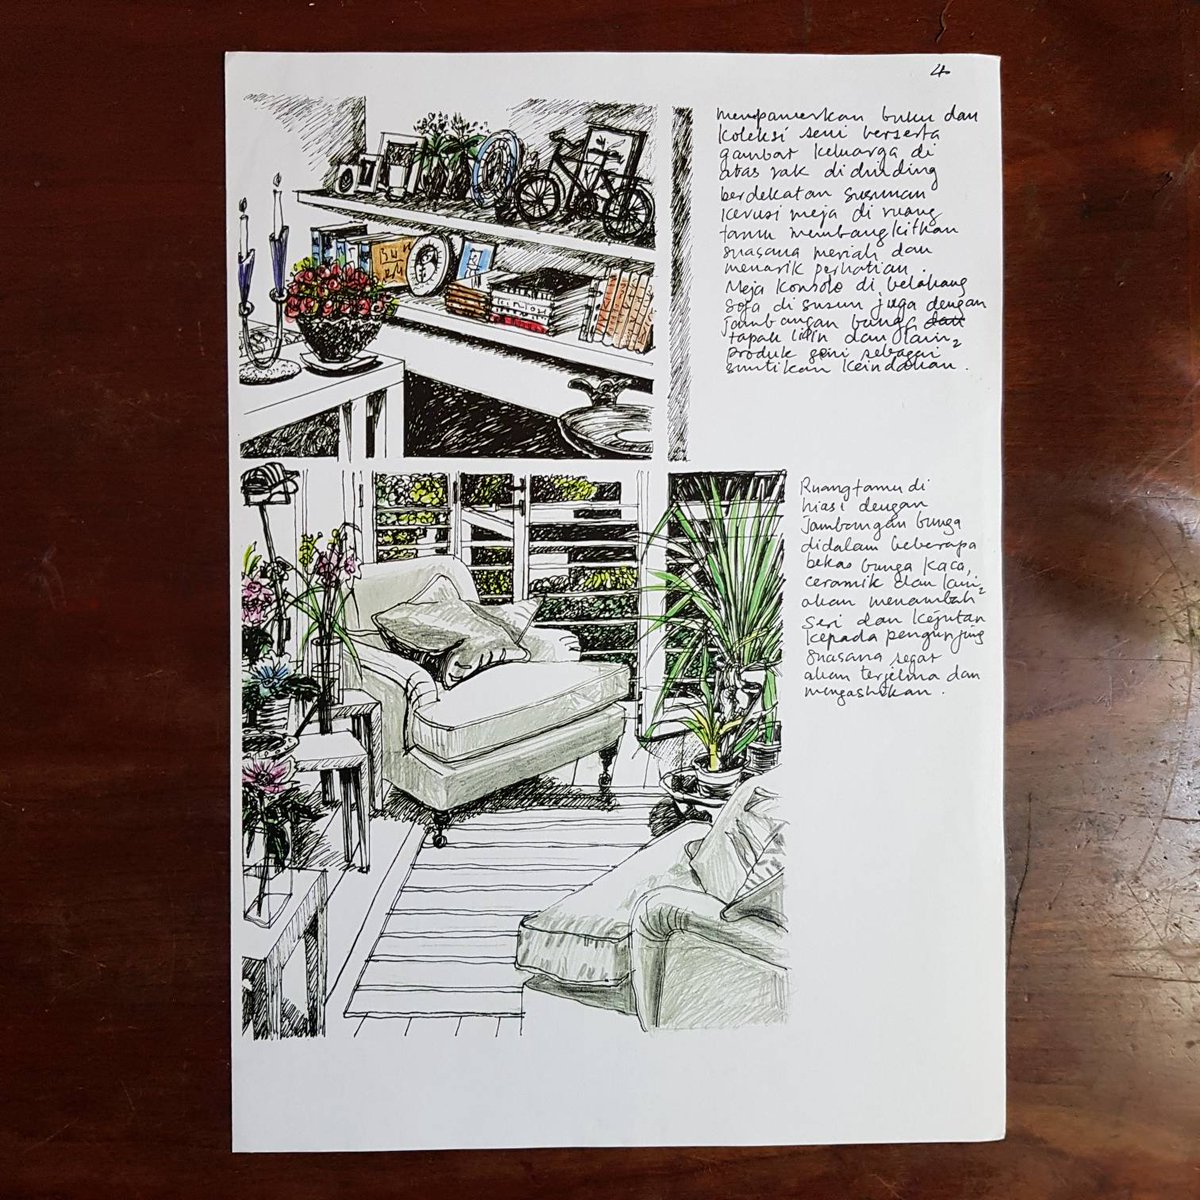 4
mempamerkan buku dan
koleksi seni berserta
gambar keluarga di
atas rak di dinding
berdekatan susunan
kerusi meja di ruang
tamu membangkitkan
suasana meriah dan
menarik perhatian.
Meja konsole di belakang
sofa di susun juga dengan
jambangan bunga,
tapak lilin dan lain2
produk seni sebagai
suntikan keindahan.
Ruangtamu di
hiasi dengan
jambangan bunga
didalam beberapa
bekas bunga kaca,
ceramik dan lain2
akan menambah
seri dan kejutan
kepada pengunjung
suasana segar
akan terjelma dan
mengasikkan.